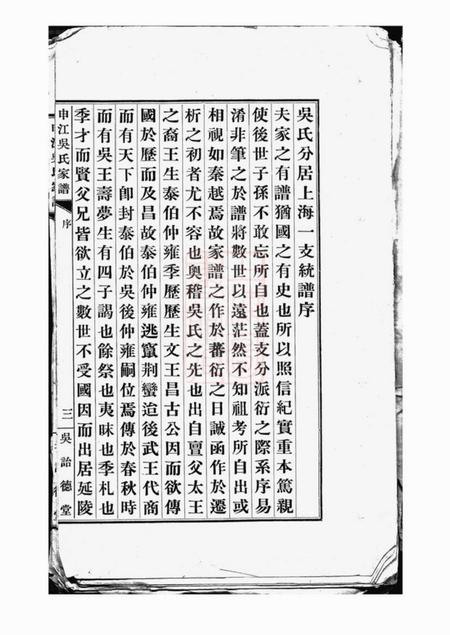 吳氏分居上海一支統譜序
夫家之有譜猶國之有史也所以照信紀實重本篤親
使後世子孫不敢忘所自也蓋支分派衍之際系序易
淆非筆之於譜將數世以遠茫然不知祖考所自出或
相視如秦越焉故家譜之作於蕃衍之日誠函作於遷
析之初者尤不容也輿稽吳氏之先也出自亶父太王
之裔王生泰伯仲雍季歷歷生文王昌古公因而欲傳
國於歷而及昌故泰伯仲雍逃竄荆蠻迨後武王代商
而有天下卽封泰伯於吳後仲雍嗣位焉傳於春秋時
而有吳王壽夢生有四子謁也餘祭也夷昧也季札也
季才而賢父兄皆欲立之數世不受國因而出居延陵
申江吳氏家譜
序
三
吳詒德堂